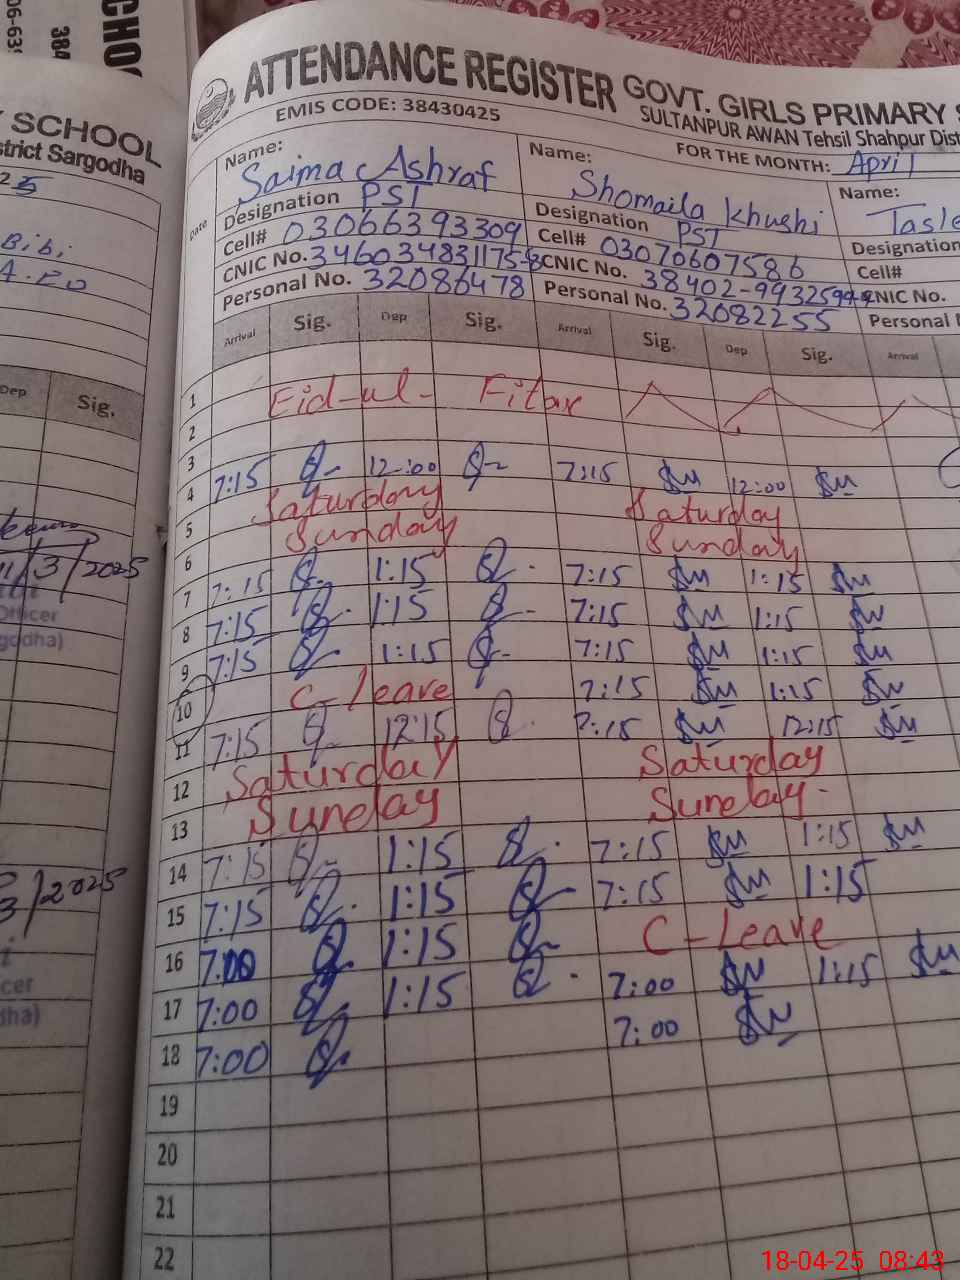 ATTENDANCE REGISTER GOVT. GIRLS PRIMARY
EMIS CODE: 38430425
SULTANPUR AWAN Tehsil Shahpur
FOR THE MONTH: April
SCHOOL
District Sargodha
Bibi
Dep Sig.
11/3/2025
3/2025
Date
Name: Saima Ashraf
Designation PST
Cell# 03066393309
CNIC No.
Personal No. 32086478
Name: Shomaila Khushi
Designation PST
Cell# 03070607586
CNIC No.
Personal No. 32082255
Name:
Designation
Cell#
CNIC No.
Personal
Arrival Sig. Dep Sig. Arrival Sig. Dep Sig. Arrival
1 Eid-ul- Fitar
2
3 7:15 12:00 7:15 12:00
4 Saturday Saturday
5 Sunday Sunday
6
7 7:15 1:15 7:15 1:15
8 7:15 1:15 7:15 1:15
9 7:15 1:15 7:15 1:15
10 C-leave 7:15 1:15
11 7:15 12:15 7:15 12:15
12 Saturday Saturday
13 Sunday Sunday
14 7:15 1:15 7:15 1:15
15 7:15 1:15 7:15 1:15
16 7:00 1:15 C-Leave
17 7:00 1:15 7:00 1:15
18 7:00 7:00
19
20
21
22
18-04-25 08:43